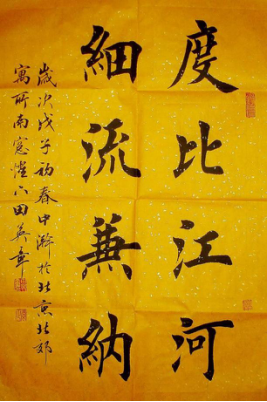 度比江河
細流兼納
歲次戊子初春中澣於北京北郊
寓所南窓燈下田英章